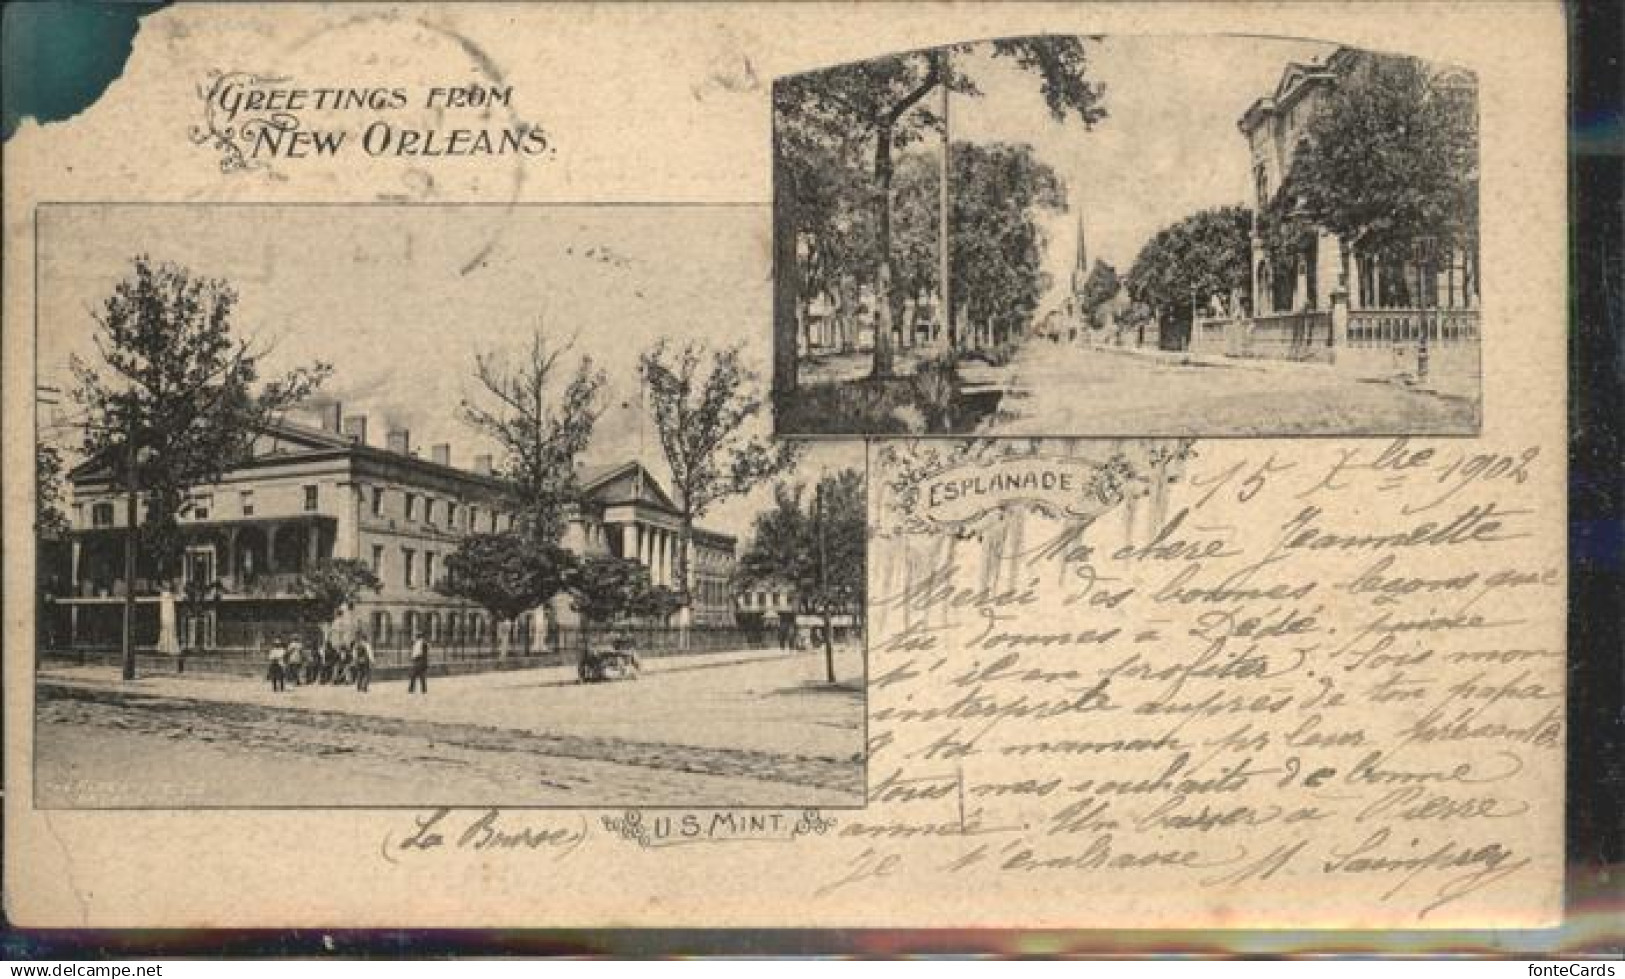 GREETINGS FROM
NEW ORLEANS.
ESPLANADE
15 Xbre 1902
Ma chère Jeannette
Merci des bonnes leçons que
tu donnes à Dédé. puisse
t'il en profiter. Sois mon
interprète auprès de ton papa
& ta maman pr leur présenter
tous mes souhaits de bonne
année. Un baiser à Pierre
je t'embrasse
(La Bourse)
U.S. MINT.
www.delcampe.net
fonteCards